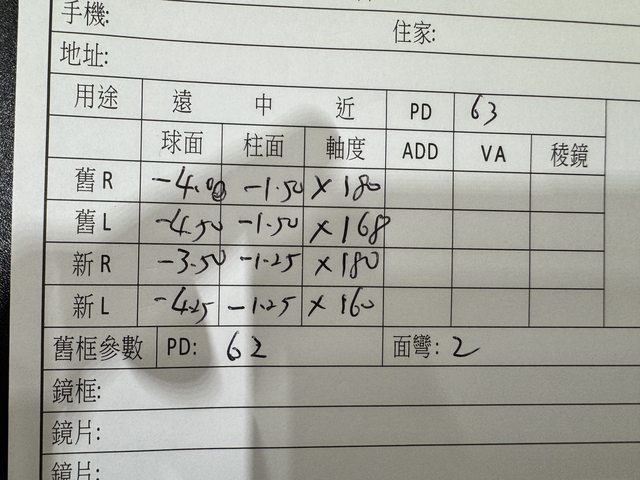 手機:
住家:
地址:
用途 遠 中 近 PD 63
球面 柱面 軸度 ADD VA 稜鏡
舊 R -4.00 -1.50 × 180
舊 L -4.50 -1.50 × 168
新 R -3.50 -1.25 × 180
新 L -4.25 -1.25 × 160
舊框參數 PD: 62 面彎: 2
鏡框:
鏡片:
鏡片: